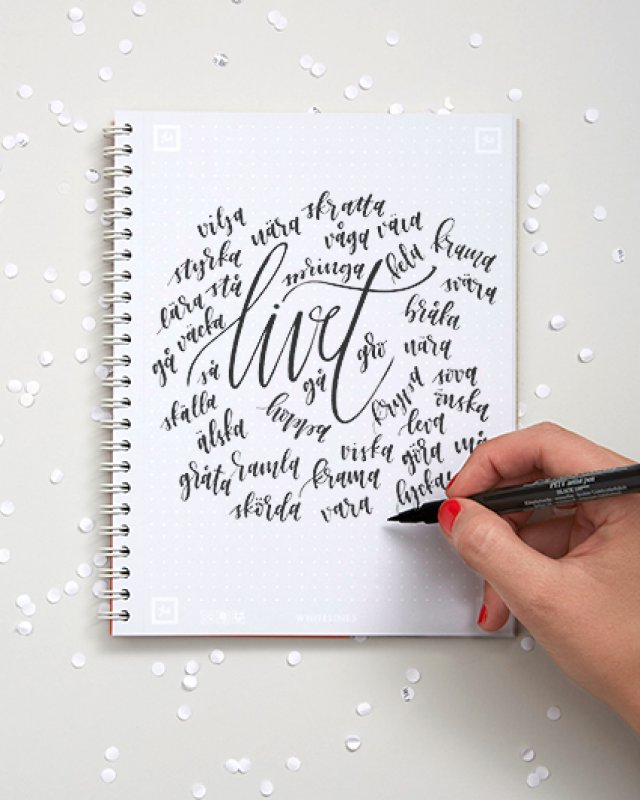 vilja
nära
skratta
våga
växa
styrka
springa
leda
krama
svära
lära
stå
gå
väcka
livet
bråka
så
gå
gro
nära
skälla
hoppa
krypa
sova
önska
älska
leva
gråta
ramla
viska
göra
må
krama
skörda
vara
lycka
WHITELINES
PITT artist pen
BLACK